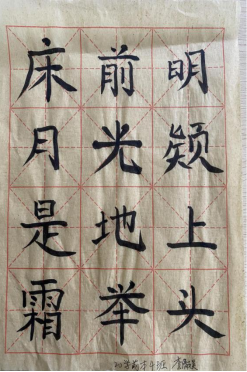 床前明
月光
是地上
霜举头